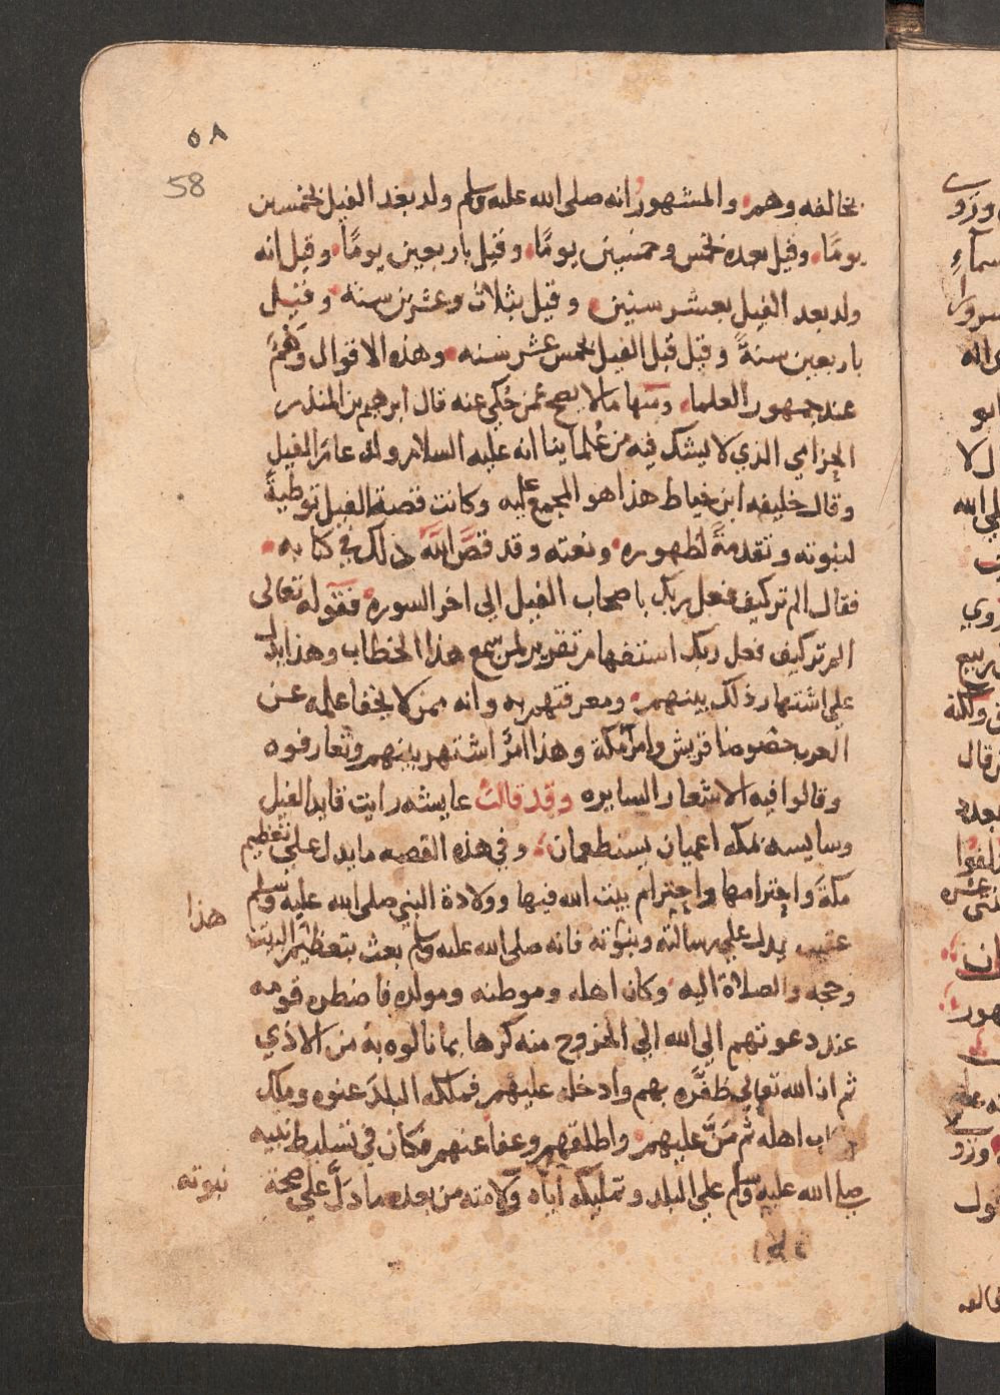 ٥٨
58
يخالفه وهم والمشهور انه صلى الله عليه وسلم ولد بعد الفيل بخمسين
يومًا وقيل بعده بخمس وخمسين يومًا وقيل باربعين يومًا وقيل انه
ولد بعد الفيل بعشر سنين وقيل بثلاث وعشرين سنه وقيل
باربعين سنةً وقيل قبل الفيل بخمس عشر سنه وهذه الاقوال وَهْمٌ
عند جمهور العلماء ومنها ما لا يصح عمن حُكي عنه قال ابرهيم بن المنذر
الحزامي الذي لا يشك فيه من عُلمآينا انه عليه السلام ولد عامَ الفيل
وقال خليفه ابن خياط هذا هو المجمع عليه وكانت قصة الفيل توطيةً
لنبوته وتقدمةً لظهوره وبعثه وقد قصَّ اللَّه ذلك في كتابه
فقال الم تر كيف فعل ربك باصحاب الفيل الى اخر السورة فقوله تعالى
الم تر كيف فعل ربك استفهام تقرير لمن سمع هذا الخطاب وهذا يدل
علي اشتهار ذلك بينهم ومعرفتهم به وانه ممن لا يخفا علمه عن
العرب خصوصًا قريش واهل مكة وهذا امرٌ اشتهر بينهم وتعارفوه
وقالوا فيه الاشعار السايره وقد قالت عايشه رايت قايد الفيل
وسايسه بمكه اعميان يستطعمان وفي هذه القصه ما يدل على تعظيم
مكةَ واحترامها واحترام بيت الله فيها وولادة النبي صلى الله عليه وسلم هذا
عقيب يدل علي رسالته ونبوّته فانه صلى الله عليه وسلم بعث بتعظيم البيت
وحجه والصلاة اليه وكان اهله وموطنه ومولده فاضطره قومه
عند دعوتهم الي الله الي الخروج منه كرها بما نالوه به من الاذي
ثم ان الله تعالي ظفَّره بهم وادخله عليهم فملكه البلدَ عنوه وملك
رقاب اهله ثم مَنَّ عليهم واطلقهم وعفا عنهم فكان في تسليط نبيه
صلى الله عليه وسلم علي البلد وتمليكه اياه ولامته من بعده ما دلَّ علي صحة نبوته